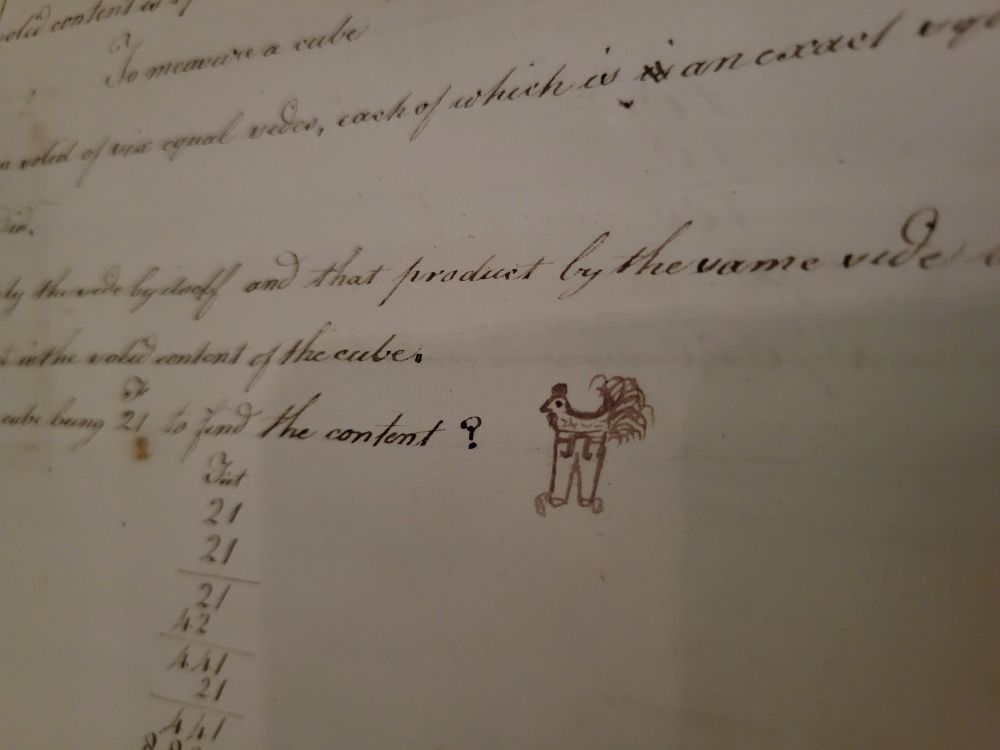 solid content is
To measure a cube
a solid of six equal sides, each of which is an exact
ly the side by itself and that product by the same side
is the solid content of the cube.
F
cube being 21 to find the content ?
Feet
21
21
21
42
441
21
441